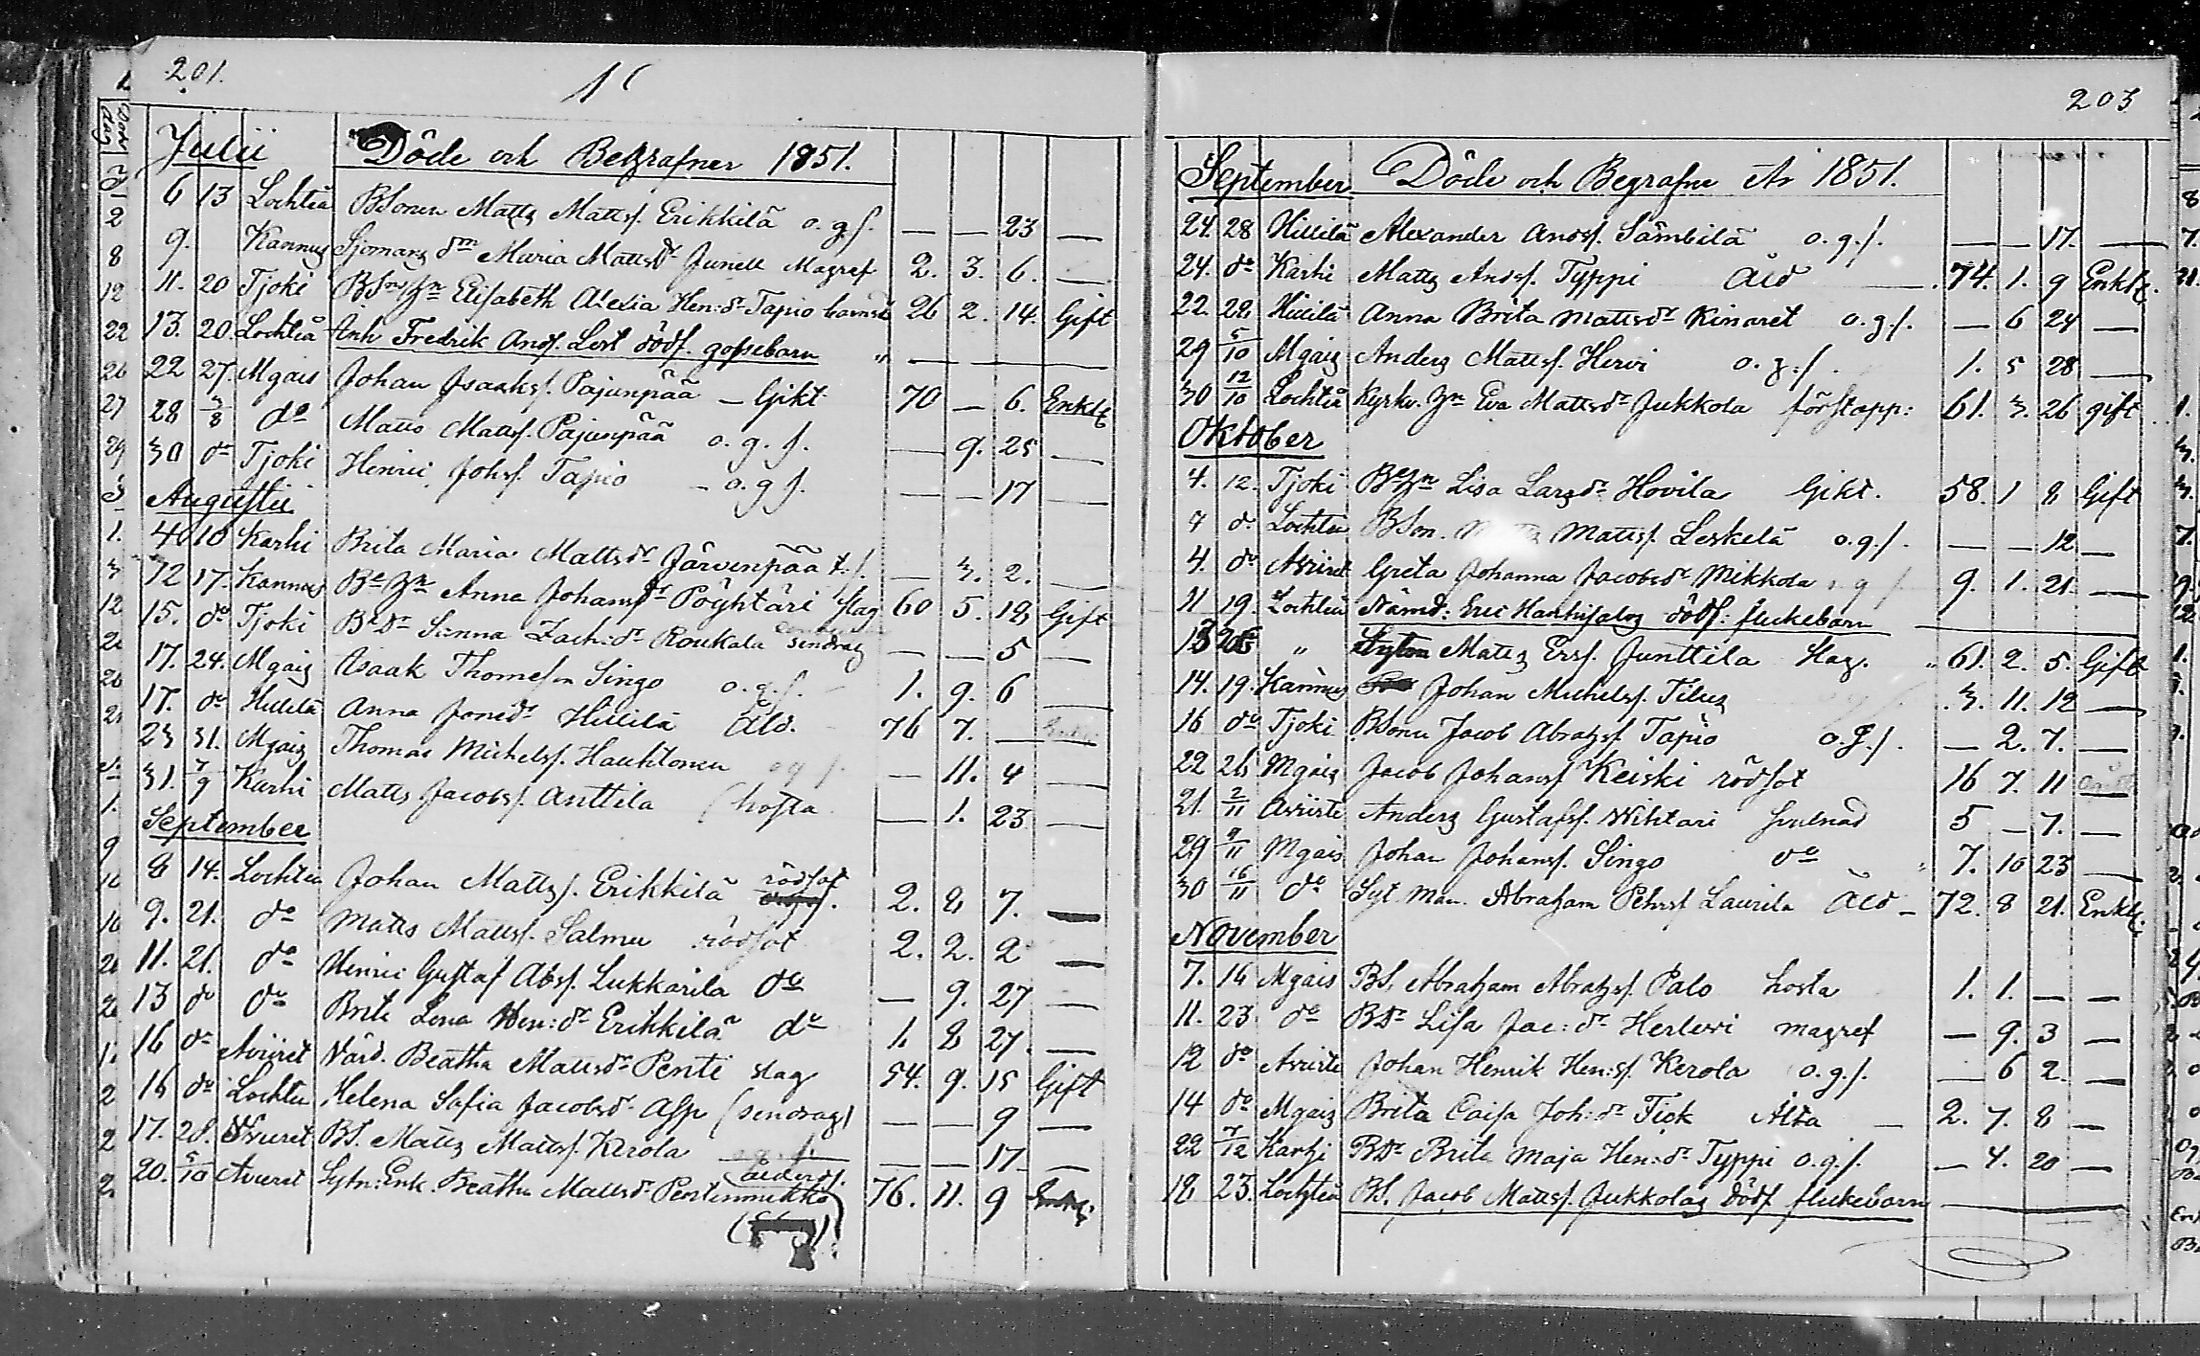 201.
Julii Döde och Begrafner 1851.
6 13 Lochteå BSonen Matts Mattsf. Erikkilä o.g.f. — — 23 —
9. Kannus Sjömans dm Maria Mattsdr Junell Magref 2. 3. 6. —
11. 20 Tjoki Elisabeth Alexia Hen:dr Tapio barnsä 26 2. 14. Gift
13. 20. Lochteå Inh Fredrik Andf. Lert dödf. gossebarn " — — —
22 27. Mgais Johan Isaaksf. Pajunpää — Gikt 70 — 6. Enkl
28 3/8 do Matts Mattsf. Pajunpää o.g.f. — 9. 25 —
30 do Tjoki Henric Johsf. Tapio - o.g.f. — — 17 —
Augustii
4 10 Karhi Brita Maria Mattsdr Järvenpää t.f. — 3. 2. —
12 17. Kannus Anna Johansdr Pöyhtäri slag 60 5. 18 Gift
15. do Tjoki Sanna Zach:dr Roukala sendrag — — 5 —
17. 24. Mgais Isaak Thomesson Singo o.g.f. 1. 9. 6 —
17. do Hillilä Anna Jonædr Hillilä Åld. 76 7. —
23 31. Mgais Thomas Michelsf. Hauhtonen o g f. — 11. 4 —
31. 7/9 Karhi Matts Jacobsf. Anttila (hosta — 1. 23 —
September
8 14. Lochteå Johan Mattsf. Erikkilä rödsot 2. 8 7. —
9. 21. do Matts Mattsf. Salmu rödsot 2. 2. 2 —
11. 21. do Henric Gustaf Absf. Lukkarila do — 9. 27 —
13 do do Brita Lena Hen:dr Erikkilä do 1. 8 27. —
16 do Aviiret Värd. Beatha Mattsdr Penti slag 54. 9. 15 Gift
16 do Lochteå Helena Safia Jacobsdr Asp (sendrag) — — 9 —
17. 28. Aviiret BS. Matts Mattsf. Kerola o.g.f. — — 17 —
20. 5/10 Aviiret Sytn: Enk. Beatha Mattsdr Pentinmikko ålderd. 76. 11. 9 Enkl:
203
September Döde och Begrafne År 1851.
24. 28 Hillilä Alexander Andsf. Sämbilä o.g.f. — — 17. —
24. do Karhi Matts Andsf. Typpi Åld — 74. 1. 9 Enkl.
22. 28 Hillilä Anna Brita Mattsdr Kinaret o.g.f. — 6 24 —
29 5/10 Mgais Anders Mattsf. Hervi o.g.f. 1. 5 28 —
30 12/10 Lochteå Kyrkv. Eva Mattsdr Jukkola förstopp: 61. 3. 26 gift
Oktober
4. 12. Tjoki Lisa Larsdr Hovila Gikt. 58. 1 8 Gift
7 do Lochteå BSon. Mattsf. Leskelä o.g.f. — — 12 —
4. do Aviiret Greta Johanna Jacobsdr Mikkola o g f 9. 1. 21. —
11 19. Lochteå Nämd: Eric Hankisalos dödf: flickebarn
13 26 " Sytn Matts Ersf. Junttila slag. " 61. 2. 5. Gift
14. 19. Kannus Johan Michelsf. Tilus 3. 11. 12 —
16 do Tjoki BSonen Jacob Abrahsf Tapio o.g.f. — 2. 7. —
22 26 Mgais Jacob Johansf Keiski rödsot 16 7. 11
21. 2/11 Aviirte Anders Gustafsf. Wihtari svulnad 5 — 7. —
29 9/11 Mgais Johan Johansf. Singo do " 7. 10 23 —
30 16/11 do Syt. man. Abraham Pehrsf Laurila Åld — 72. 8 21. Enkl:
November
7. 16 Mgais BS. Abraham Abrahsf. Palo hosta 1. 1. — —
11. 23. do BDr Lisa Jac:dr Herlevi magref — 9. 3 —
12 do Aviirte Johan Henrik Hen:sf. Kerola o.g.f. — 6 2. —
14 do Mgais Brita Caisa Joh:dr Fick Älta — 2. 7. 8 —
22 7/12 Karhi BDr Brita Maja Hen:dr Typpi o.g.f. — 4. 20 —
18 23. Lochteå BS. Jacob Mattsf. Jukkolas dödf flickebarn —